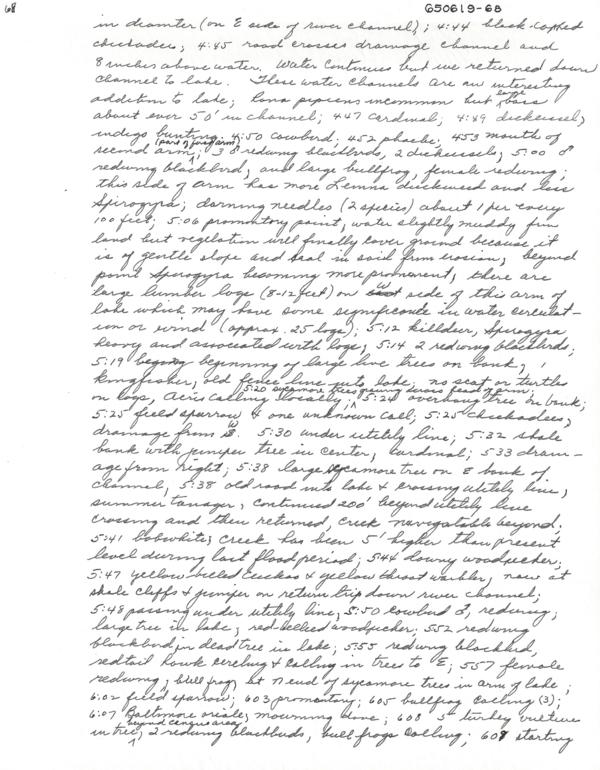 68
650619-68
in diameter (on E side of river channel); 4:44 black-capped
chickadee; 4:45 road crosses drainage channel and
8 inches above water. Water continues but we returned down
channel to lake. These water channels are an interesting
addition to lake; Rana pipiens uncommon but large bass
about ever 50' in channel; 447 cardinal; 4:49 dickcissel,
indigo bunting; 4:50 cowbird; 452 phoebe; 453 mouth of
second arm (part of first arm); 3 ♂ redwing blackbirds, 2 dickcissels; 5:00 ♂
redwing blackbird, and large bullfrog, female redwing;
this side of arm has more Lemna duckweed and less
Spirogyra; darning needles (2 species) about 1 per every
100 feet; 5:06 promontory point, water slightly muddy from
land but vegetation will finally cover ground because it
is of gentle slope and seal in soil from erosion; beyond
point Spirogyra becoming more prominent, there are
large lumber logs (8-12 feet) on W side of this arm of
lake which may have some significance in water circulat-
ion or wind (approx. 25 logs); 5:12 killdeer, Spirogyra
heavy and associated with logs; 5:14 2 redwing blackbirds;
5:19 beginning of large live trees on bank, 1
kingfisher, old fence line into lake, no scat or turtles
on logs, Acris calling locally; 5:20 sycamore trees 5:24 overhang tree on bank;
5:25 field sparrow & one unknown call; 5:25 chickadees,
drainage from W. 5:30 under utility line; 5:32 shale
bank with juniper tree in center, cardinal; 5:33 drain-
age from right; 5:38 large sycamore tree on E bank of
channel; 5:38 old road into lake & crossing utility line,
summer tanager, continued 200' beyond utility line
crossing and then returned, creek navigatable beyond.
5:41 bobwhite; creek has been 5' higher than present
level during last flood period; 544 downy woodpecker;
5:47 yellow-billed cuckoo & yellow throat warbler, now at
shale cliffs & juniper on return trip down river channel;
5:48 passing under utility line; 5:50 cowbird ♂, redwing;
large tree in lake, red-bellied woodpecker; 552 redwing
blackbird in dead tree in lake; 555 redwing blackbird,
redtail hawk circling & calling in trees to E; 557 female
redwing; bullfrog at N end of sycamore trees in arm of lake;
6:02 field sparrow; 603 promontory; 605 bullfrog calling (3);
6:07 Baltimore oriole, mourning dove; 608 5 turkey vulture
in tree beyond census area, 2 redwing blackbirds, bull frogs calling; 608 starting